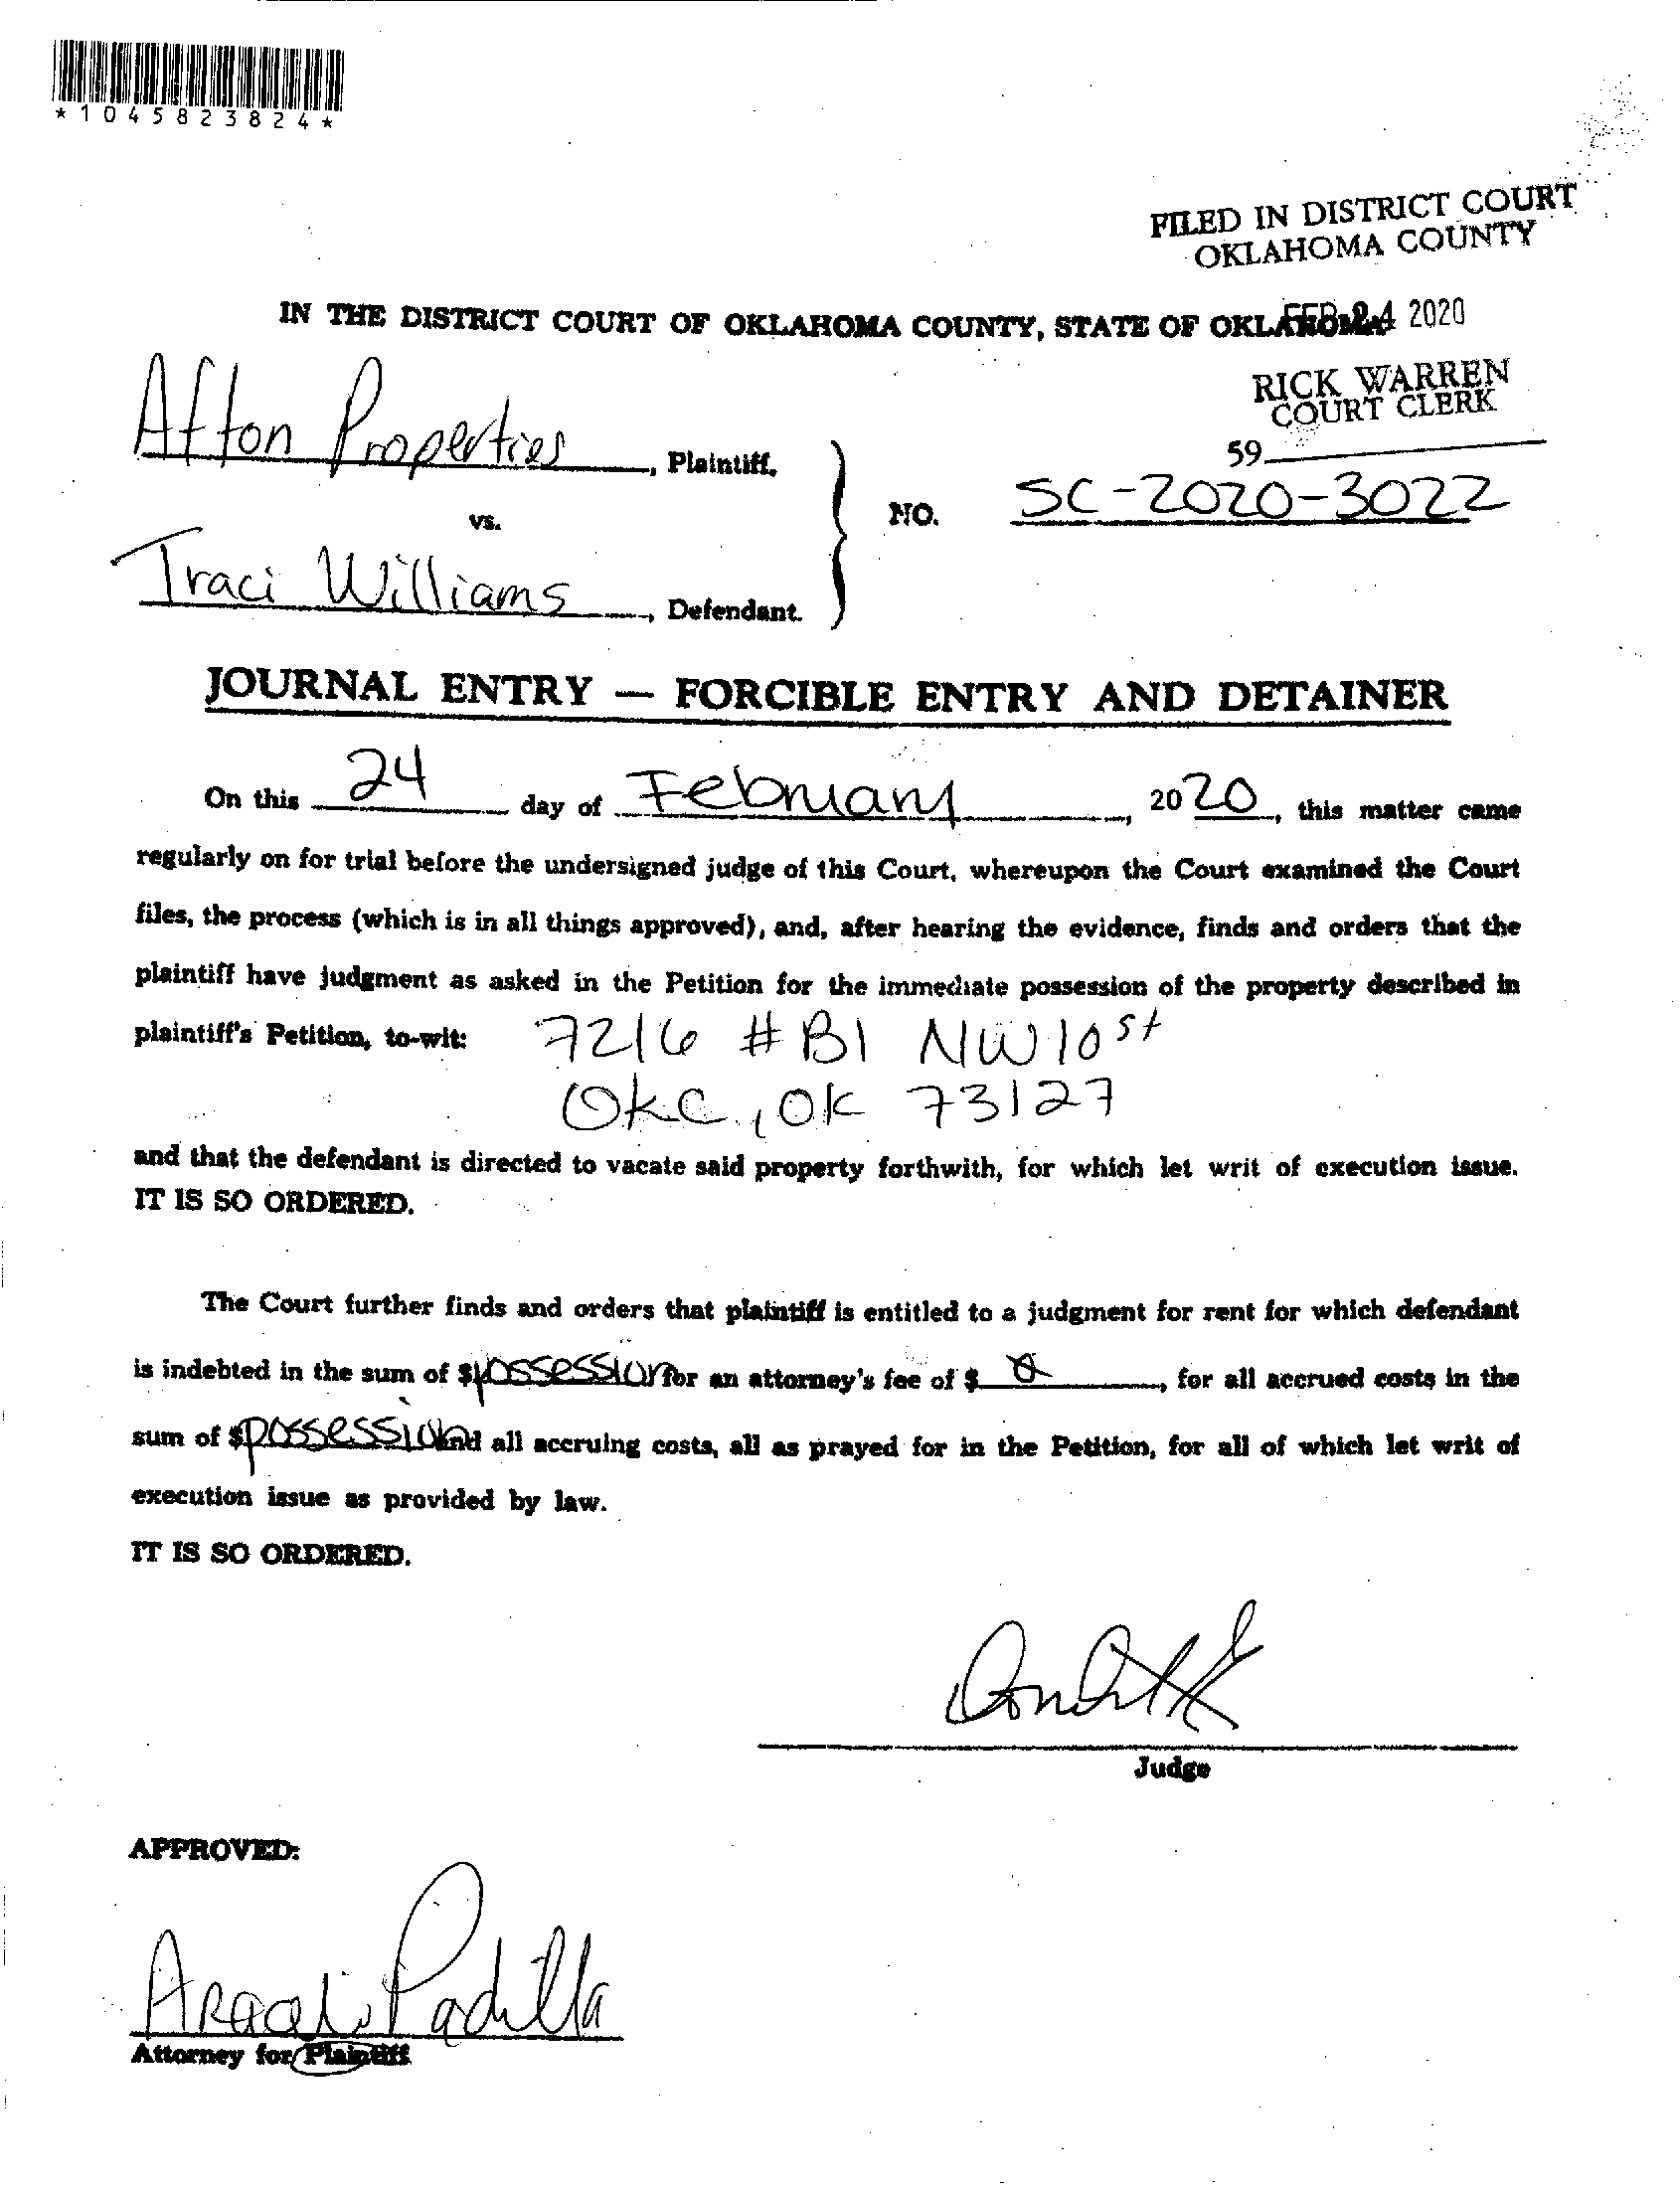 *1045823824*
FILED IN DISTRICT COURT
OKLAHOMA COUNTY
IN THE DISTRICT COURT OF OKLAHOMA COUNTY, STATE OF OKLAHOMA
FEB 24 2020
RICK WARREN
COURT CLERK
59
Afton Properties, Plaintiff,
vs.
NO. SC-2020-3022
Traci Williams, Defendant.
JOURNAL ENTRY — FORCIBLE ENTRY AND DETAINER
On this 24 day of February, 2020, this matter came
regularly on for trial before the undersigned judge of this Court, whereupon the Court examined the Court
files, the process (which is in all things approved), and, after hearing the evidence, finds and orders that the
plaintiff have judgment as asked in the Petition for the immediate possession of the property described in
plaintiff's Petition, to-wit: 7216 #B1 NW 10 st
OKC, OK 73127
and that the defendant is directed to vacate said property forthwith, for which let writ of execution issue.
IT IS SO ORDERED.
The Court further finds and orders that plaintiff is entitled to a judgment for rent for which defendant
is indebted in the sum of $possession for an attorney's fee of $ 0, for all accrued costs in the
sum of $possession and all accruing costs, all as prayed for in the Petition, for all of which let writ of
execution issue as provided by law.
IT IS SO ORDERED.
Judge
APPROVED:
Araceli Padilla
Attorney for Plaintiff